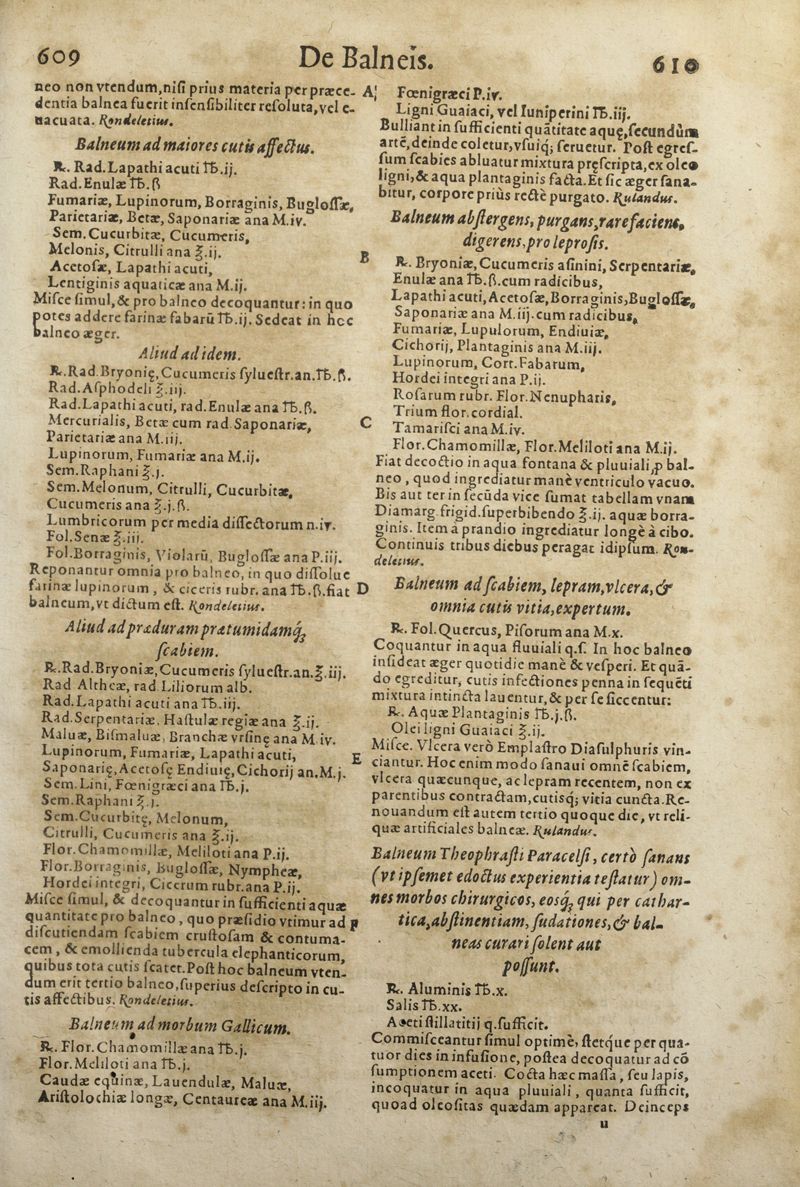 609
De Balneis.
610
neo non vtendum,nisi prius materia per præce-
dentia balnea fuerit insensibiliter resoluta,vel e-
uacuata. Rondeletius.
Balneum ad maiores cutis affectus.
℞. Rad.Lapathi acuti ℔.ij.
Rad.Enulæ ℔.ß
Fumariæ, Lupinorum, Borraginis, Buglossæ,
Parietariæ, Betæ, Saponariæ ana M.iv.
Sem.Cucurbitæ, Cucumeris,
Melonis, Citrulli ana ℥.ij.
Acetosæ, Lapathi acuti,
Lentiginis aquaticæ ana M.ij.
Misce simul,& pro balneo decoquantur: in quo
potes addere farinæ fabarū ℔.ij. Sedeat in hoc
balneo æger.
Aliud ad idem.
℞.Rad.Bryonię,Cucumeris syluestr.an.℔.ß.
Rad.Asphodeli ℥.iij.
Rad.Lapathi acuti, rad.Enulæ ana ℔.ß.
Mercurialis, Betæ cum rad.Saponariæ,
Parietariæ ana M.iij.
Lupinorum, Fumariæ ana M.ij.
Sem.Raphani ℥.j.
Sem.Melonum, Citrulli, Cucurbitæ,
Cucumeris ana ℥.j.ß.
Lumbricorum per media dissectorum n.iv.
Fol.Senæ ℥.iij.
Fol.Borraginis, Violarū, Buglossæ ana P.iij.
Reponantur omnia pro balneo, in quo dissolue
farinæ lupinorum, & ciceris rubr. ana ℔.ß.fiat
balneum,vt dictum est. Rondeletius.
Aliud ad præduram prætumidamq́;
scabiem.
℞.Rad.Bryoniæ,Cucumeris syluestr.an.℥.iij.
Rad Altheæ, rad Liliorum alb.
Rad.Lapathi acuti ana ℔.iij.
Rad.Serpentariæ, Hastulæ regiæ ana ℥.ij.
Maluæ, Bismaluæ, Branchæ vrsinę ana M.iv.
Lupinorum, Fumariæ, Lapathi acuti,
Saponarię,Acetosę Endiuię,Cichorij an.M.j.
Sem.Lini, Fœnigræci ana ℔.j.
Sem.Raphani ℥.j.
Sem.Cucurbitę, Melonum,
Citrulli, Cucumeris ana ℥.ij.
Flor.Chamomillæ, Meliloti ana P.ij.
Flor.Borraginis, Buglossæ, Nympheæ,
Hordei integri, Cicerum rubr.ana P.ij.
Misce simul, & decoquantur in sufficienti aquæ
quantitate pro balneo, quo præsidio vtimur ad
discutiendam scabiem crustosam & contuma-
cem, & emollienda tubercula elephanticorum,
quibus tota cutis scatet.Post hoc balneum vten-
dum erit tertio balneo,superius descripto in cu-
tis affectibus. Rondeletius.
Balneum ad morbum Gallicum.
℞.Flor.Chamomillæ ana ℔.j.
Flor.Meliloti ana ℔.j.
Caudæ equinæ, Lauendulæ, Maluæ,
Aristolochiæ longæ, Centaureæ ana M.iij.
A
Fœnigræci P.iv.
Ligni Guaiaci, vel Iuniperini ℔.iij.
Bulliant in sufficienti quātitate aquę,secundùm
artē,deinde coletur,vsuiq́; seruetur. Post egres-
sum scabies abluatur mixtura pręscripta,ex oleo
ligni,& aqua plantaginis facta.Et sic æger sana-
bitur, corpore priùs rectè purgato. Rulandus.
Balneum abstergens, purgans,rarefaciens,
digerens,pro leprosis.
B
℞. Bryoniæ,Cucumeris asinini, Serpentariæ,
Enulæ ana ℔.ß.cum radicibus,
Lapathi acuti,Acetosæ,Borraginis,Buglossæ,
Saponariæ ana M.iij.cum radicibus,
Fumariæ, Lupulorum, Endiuiæ,
Cichorij, Plantaginis ana M.iij.
Lupinorum, Cort.Fabarum,
Hordei integri ana P.ij.
Rosarum rubr. Flor.Nenupharis,
Trium flor.cordial.
C
Tamarisci ana M.iv.
Flor.Chamomillæ, Flor.Meliloti ana M.ij.
Fiat decoctio in aqua fontana & pluuiali,p bal-
neo, quod ingrediatur manè ventriculo vacuo.
Bis aut ter in secūda vice sumat tabellam vnam
Diamarg.frigid.superbibendo ℥.ij. aquæ borra-
ginis. Item a prandio ingrediatur longè à cibo.
Continuis tribus diebus peragat idipsum. Ron-
deletius.
D
Balneum ad scabiem, lepram,vlcera,&
omnia cutis vitia,expertum.
℞.Fol.Quercus, Pisorum ana M.x.
Coquantur in aqua fluuiali q.s. In hoc balneo
insideat æger quotidie manè & vesperi. Et quā-
do egreditur, cutis infectiones penna in sequēti
mixtura intincta lauentur,& per se siccentur:
℞. Aquæ Plantaginis ℔.j.ß.
Olei ligni Guaiaci ℥.ij.
Misce. Vlcera verò Emplastro Diasulphuris vin-
E
ciantur. Hoc enim modo sanaui omnē scabiem,
vlcera quæcunque, ac lepram recentem, non ex
parentibus contractam,cutisq́; vitia cuncta.Re-
nouandum est autem tertio quoque die, vt reli-
quæ artificiales balneæ. Rulandus.
Balneum Theophrasti Paracelsi, certò sanans
(vt ipsemet edoctus experientia testatur) om-
nes morbos chirurgicos, eosq́; qui per cathar-
F
tica,abstinentiam, sudationes,& bal-
neas curari solent aut
possunt.
℞. Aluminis ℔.x.
Salis ℔.xx.
Aceti stillatitij q.sufficit.
Commisceantur simul optimè, stetque per qua-
tuor dies in infusione, postea decoquatur ad cō
sumptionem aceti. Cocta hæc massa, seu lapis,
incoquatur in aqua pluuiali, quanta sufficit,
quoad oleositas quædam appareat. Deinceps
u